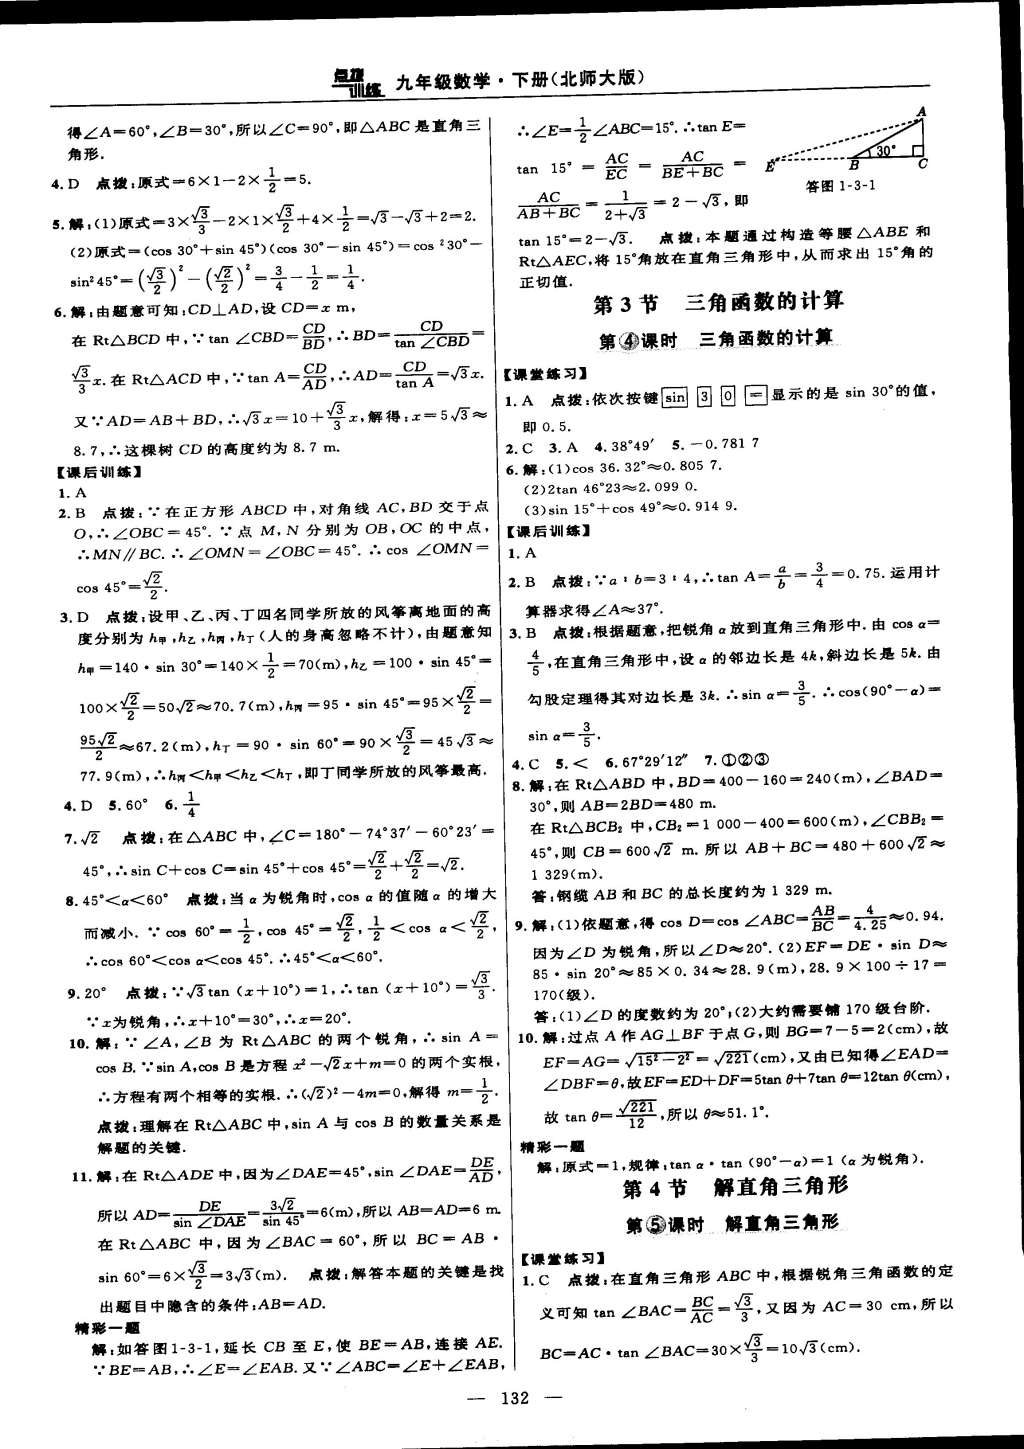 点拨训练 九年级数学·下册(北师大版)
得∠A=60°,∠B=30°,所以∠C=90°,即△ABC 是直角三
角形.
4. D 点拨:原式=6×1-2×1/2=5.
5. 解:(1)原式=3×√3/3-2×1×√3/2+4×1/2=√3-√3+2=2.
(2)原式=(cos 30°+sin 45°)(cos 30°-sin 45°)=cos²30°-
sin²45°=(√3/2)²-(√2/2)²=3/4-1/2=1/4.
6. 解:由题意可知:CD⊥AD,设 CD=x m,
在 Rt△BCD 中,∵tan ∠CBD=CD/BD,∴BD=CD/tan ∠CBD=
√3/3 x.在 Rt△ACD 中,∵tan A=CD/AD,∴AD=CD/tan A=√3x.
又∵AD=AB+BD,∴√3x=10+√3/3 x,解得:x=5√3≈
8.7,∴这棵树 CD 的高度约为 8.7 m.
【课后训练】
1. A
2. B 点拨:∵在正方形 ABCD 中,对角线 AC,BD 交于点
O,∴∠OBC=45°.∵点 M,N 分别为 OB,OC 的中点,
∴MN∥BC.∴∠OMN=∠OBC=45°.∴cos ∠OMN=
cos 45°=√2/2.
3. D 点拨:设甲、乙、丙、丁四名同学所放的风筝离地面的高
度分别为 h甲,h乙,h丙,h丁(人的身高忽略不计),由题意知
h甲=140·sin 30°=140×1/2=70(m),h乙=100·sin 45°=
100×√2/2=50√2≈70.7(m),h丙=95·sin 45°=95×√2/2=
95√2/2≈67.2(m),h丁=90·sin 60°=90×√3/2=45√3≈
77.9(m),∴h丙<h甲<h乙<h丁,即丁同学所放的风筝最高.
4. D 5. 60° 6. 1/4
7. √2 点拨:在△ABC 中,∠C=180°-74°37′-60°23′=
45°,∴sin C+cos C=sin 45°+cos 45°=√2/2+√2/2=√2.
8. 45°<α<60° 点拨:当 α 为锐角时,cos α 的值随 α 的增大
而减小.∵cos 60°=1/2,cos 45°=√2/2,1/2<cos α<√2/2,
∴cos 60°<cos α<cos 45°.∴45°<α<60°.
9. 20° 点拨:∵√3tan (x+10°)=1,∴tan (x+10°)=√3/3.
∵x为锐角,∴x+10°=30°,∴x=20°.
10. 解:∵∠A,∠B 为 Rt△ABC 的两个锐角,∴sin A=
cos B.∵sin A,cos B 是方程 x²-√2x+m=0 的两个实根,
∴方程有两个相等的实根.∴(√2)²-4m=0,解得 m=1/2.
点拨:理解在 Rt△ABC 中,sin A 与 cos B 的数量关系是
解题的关键.
11. 解:在 Rt△ADE 中,因为∠DAE=45°,sin ∠DAE=DE/AD,
所以 AD=DE/sin ∠DAE=3√2/sin 45°=6(m),所以 AB=AD=6 m.
在 Rt△ABC 中,因为∠BAC=60°,所以 BC=AB·
sin 60°=6×√3/2=3√3(m). 点拨:解答本题的关键是找
出题目中隐含的条件:AB=AD.
精彩一题
解:如答图1-3-1,延长 CB 至 E,使 BE=AB,连接 AE.
∵BE=AB,∴∠E=∠EAB.又∵∠ABC=∠E+∠EAB,
∴∠E=1/2∠ABC=15°.∴tan E=
tan 15°=AC/EC=AC/(BE+BC)=
AC/(AB+BC)=1/(2+√3)=2-√3,即
A
E
30°
B
C
答图 1-3-1
tan 15°=2-√3. 点拨:本题通过构造等腰△ABE 和
Rt△AEC,将 15°角放在直角三角形中,从而求出 15°角的
正切值.
第 3 节 三角函数的计算
第④课时 三角函数的计算
【课堂练习】
1. A 点拨:依次按键 sin 3 0 = 显示的是 sin 30°的值,
即 0.5.
2. C 3. A 4. 38°49′ 5. -0.781 7
6. 解:(1)cos 36.32°≈0.805 7.
(2)2tan 46°23≈2.099 0.
(3)sin 15°+cos 49°≈0.914 9.
【课后训练】
1. A
2. B 点拨:∵a∶b=3∶4,∴tan A=a/b=3/4=0.75.运用计
算器求得∠A≈37°.
3. B 点拨:根据题意,把锐角 α 放到直角三角形中.由 cos α=
4/5,在直角三角形中,设 α 的邻边长是 4k,斜边长是 5k.由
勾股定理得其对边长是 3k.∴sin α=3/5.∴cos(90°-α)=
sin α=3/5.
4. C 5. < 6. 67°29′12″ 7. ①②③
8. 解:在 Rt△ABD 中,BD=400-160=240(m),∠BAD=
30°,则 AB=2BD=480 m.
在 Rt△BCB₂ 中,CB₂=1 000-400=600(m),∠CBB₂=
45°,则 CB=600√2 m.所以 AB+BC=480+600√2≈
1 329(m).
答:钢缆 AB 和 BC 的总长度约为 1 329 m.
9. 解:(1)依题意,得 cos D=cos ∠ABC=AB/BC=4/4.25≈0.94.
因为∠D 为锐角,所以∠D≈20°.(2)EF=DE·sin D≈
85·sin 20°≈85×0.34≈28.9(m),28.9×100÷17=
170(级).
答:(1)∠D 的度数约为 20°;(2)大约需要铺 170 级台阶.
10. 解:过点 A 作 AG⊥BF 于点 G,则 BG=7-5=2(cm),故
EF=AG=√(15²-2²)=√221(cm),又由已知得∠EAD=
∠DBF=θ,故EF=ED+DF=5tan θ+7tan θ=12tan θ(cm),
故 tan θ=√221/12,所以 θ≈51.1°.
精彩一题
解:原式=1,规律:tan α·tan (90°-α)=1 (α 为锐角).
第 4 节 解直角三角形
第⑤课时 解直角三角形
【课堂练习】
1. C 点拨:在直角三角形 ABC 中,根据锐角三角函数的定
义可知 tan ∠BAC=BC/AC=√3/3,又因为 AC=30 cm,所以
BC=AC·tan ∠BAC=30×√3/3=10√3(cm).
— 132 —